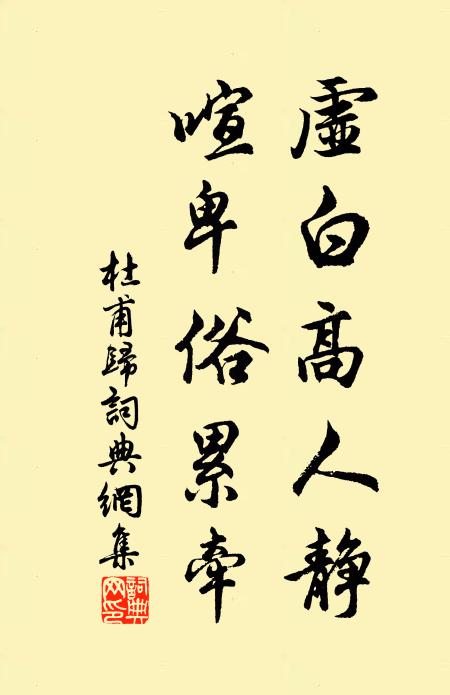 虛白高人静
喧卑俗累牽
杜甫歸詞典網集
詞典网印